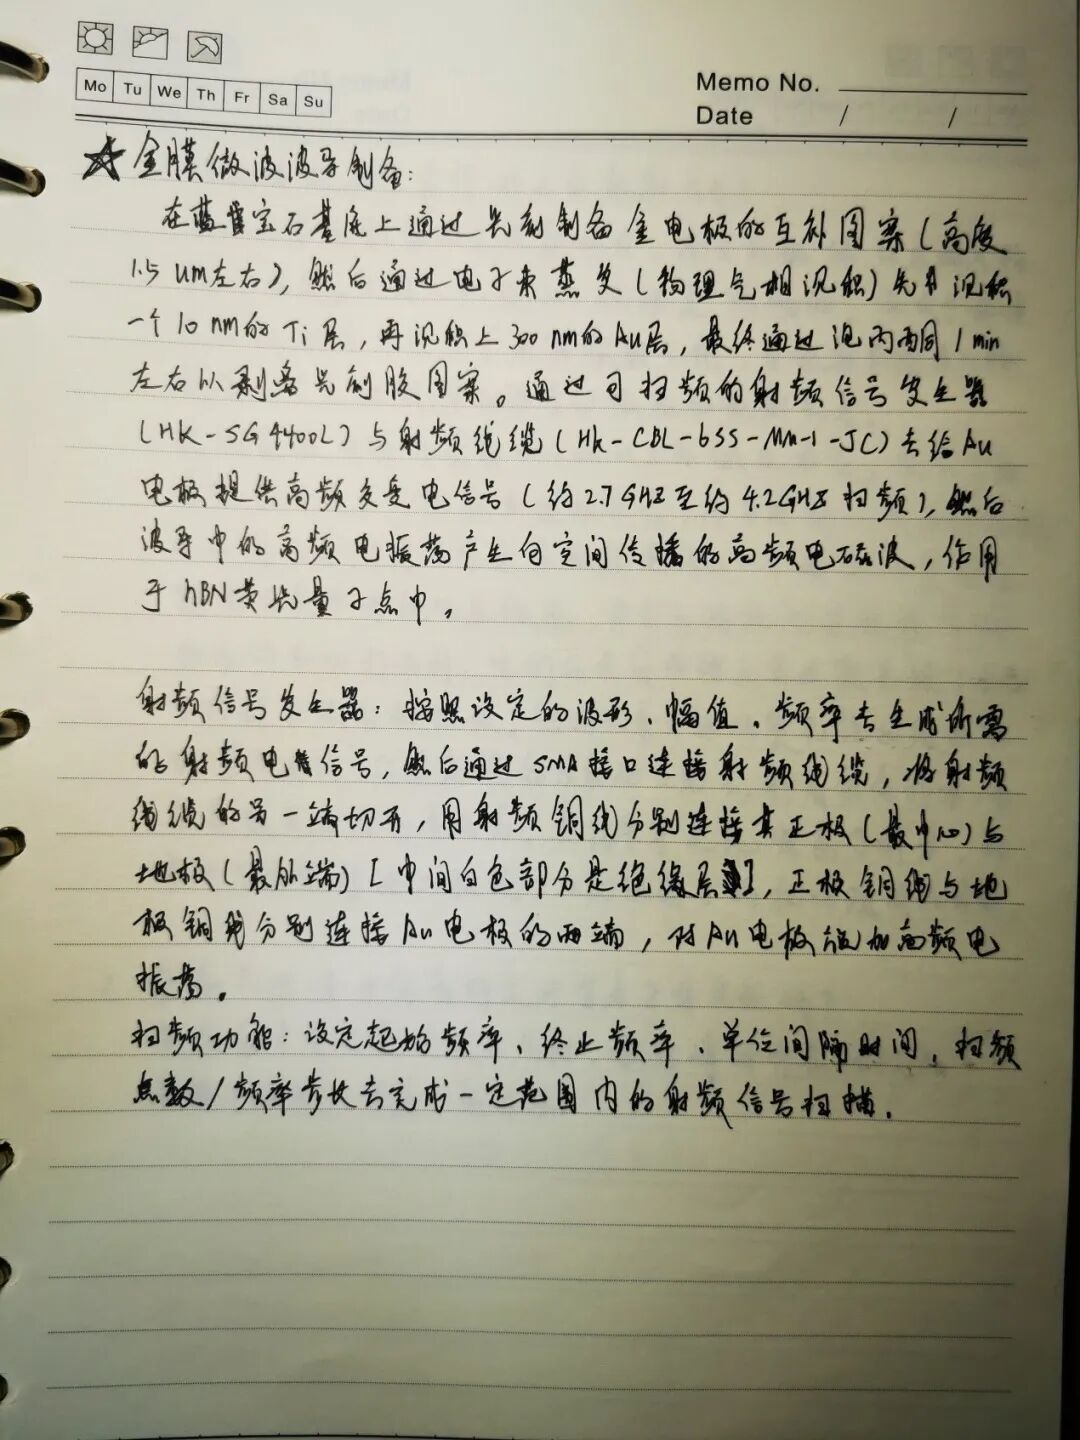 Mo Tu We Th Fr Sa Su
Memo No.
Date / /
金膜微波波导制备:
在蓝宝石基底上通过光刻制备金电极的互补图案(高度
1.5 um左右),然后通过电子束蒸发(物理气相沉积)先沉积
一个10 nm的Ti层,再沉积上300 nm的Au层,最终通过泡丙酮1 min
左右以剥离光刻胶图案。通过可扫频的射频信号发生器
(HK-SG4400L)与射频线缆(HK-CBL-6SS-MM-1-JC)去给Au
电极提供高频交变电信号(约2.7GHz至约4.2GHz扫频),然后
波导中的高频电振荡产生向空间传播的高频电磁波,作用
于hBN荧光量子点中。
射频信号发生器:按照设定的波形、幅值、频率去生成所需
的射频电信号,然后通过SMA接口连接射频线缆,将射频
线缆的另一端切开,用射频铜线分别连接其正极(最中心)与
地极(最外端)[中间白色部分是绝缘层],正极铜线与地
极铜线分别连接Au电极的两端,对Au电极施加高频电
振荡。
扫频功能:设定起始频率、终止频率、单位间隔时间、扫频
点数/频率步长去完成一定范围内的射频信号扫描.